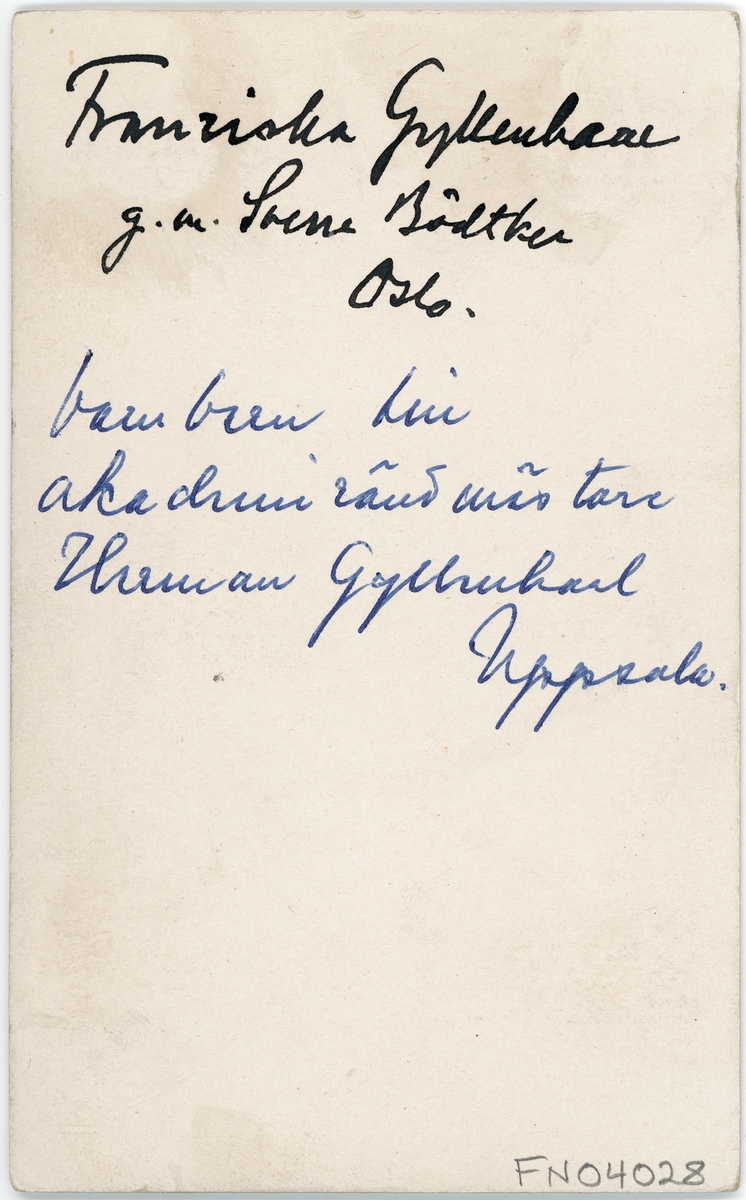 Franziska Gyllenhaal
g.m. Sverre Bödtker
Oslo.
barnbarn till
akademiräntmästare
Herman Gyllenhaal
Uppsala.
FN04028